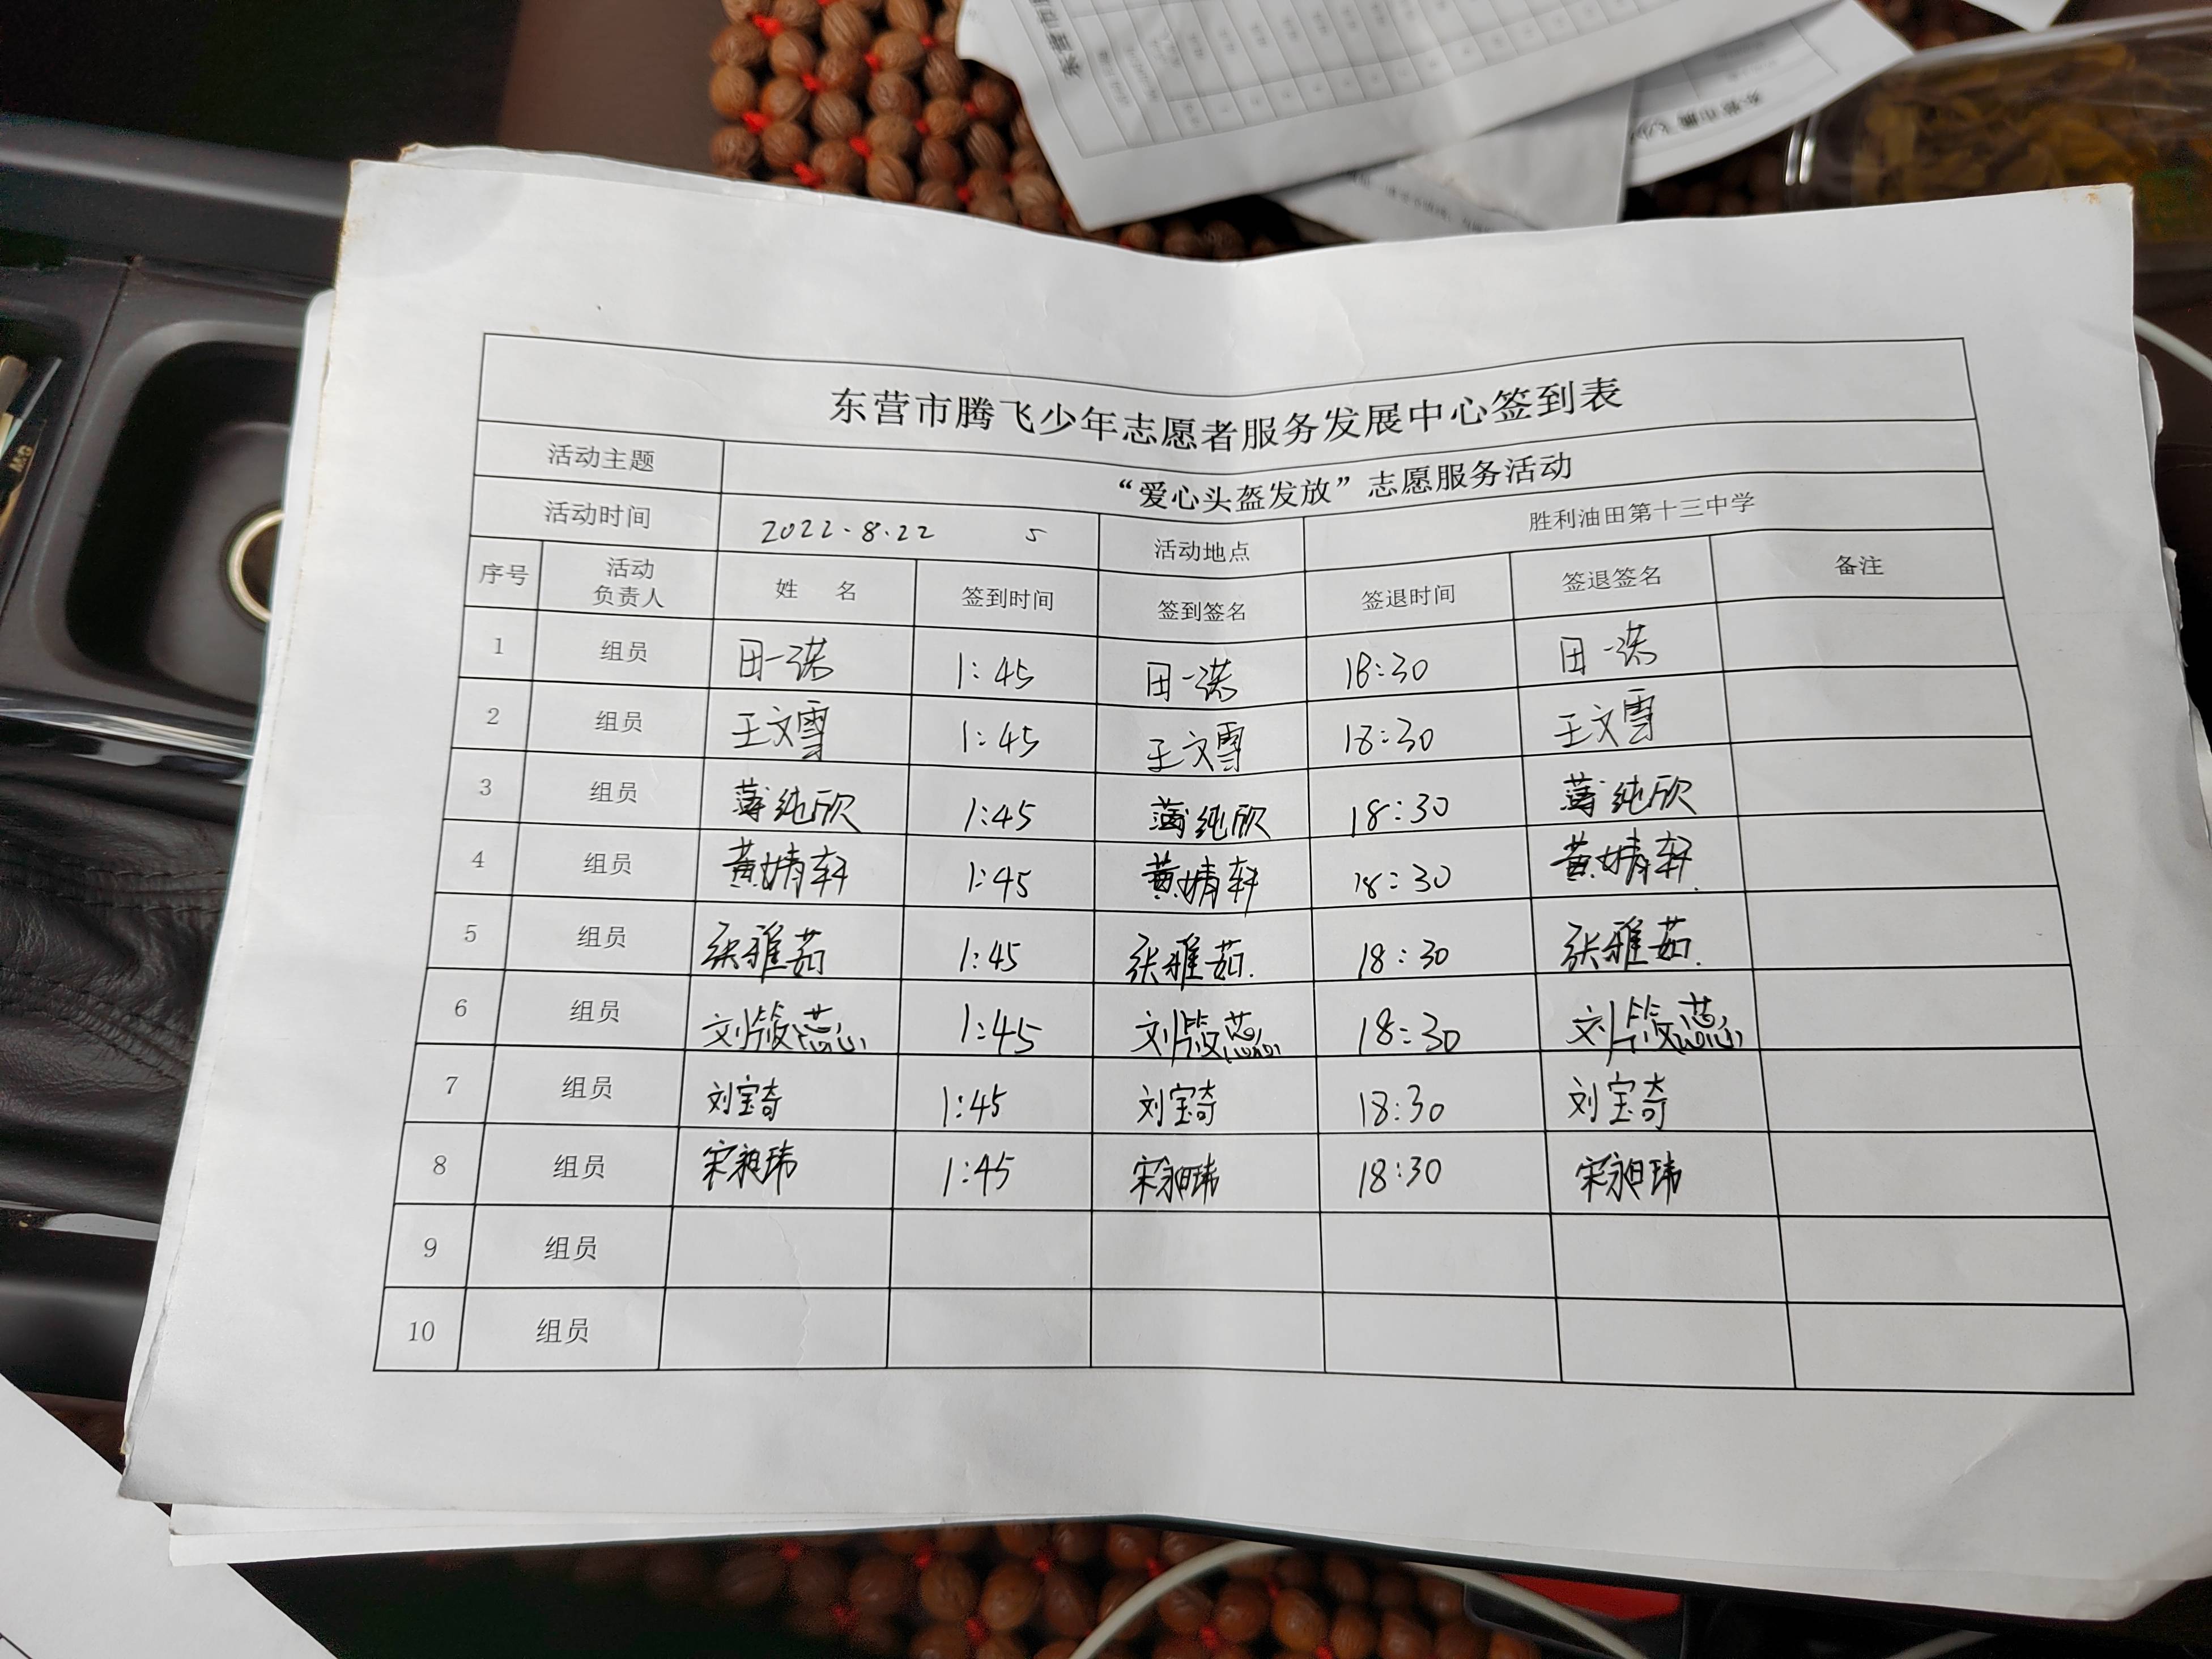 东营市腾飞少年志愿者服务发展中心签到表
活动主题 “爱心头盔发放”志愿服务活动
活动时间 2022.8.22 5 活动地点 胜利油田第十三中学
序号 活动负责人 姓 名 签到时间 签到签名 签退时间 签退签名 备注
1 组员 田一诺 1:45 田一诺 18:30 田一诺
2 组员 王文雪 1:45 王文雪 18:30 王文雪
3 组员 薄纯欣 1:45 薄纯欣 18:30 薄纯欣
4 组员 黄婧轩 1:45 黄婧轩 18:30 黄婧轩
5 组员 张雅茹 1:45 张雅茹. 18:30 张雅茹.
6 组员 刘筱蕊 1:45 刘筱蕊 18:30 刘筱蕊
7 组员 刘宝奇 1:45 刘宝奇 18:30 刘宝奇
8 组员 1:45 18:30
9 组员
10 组员